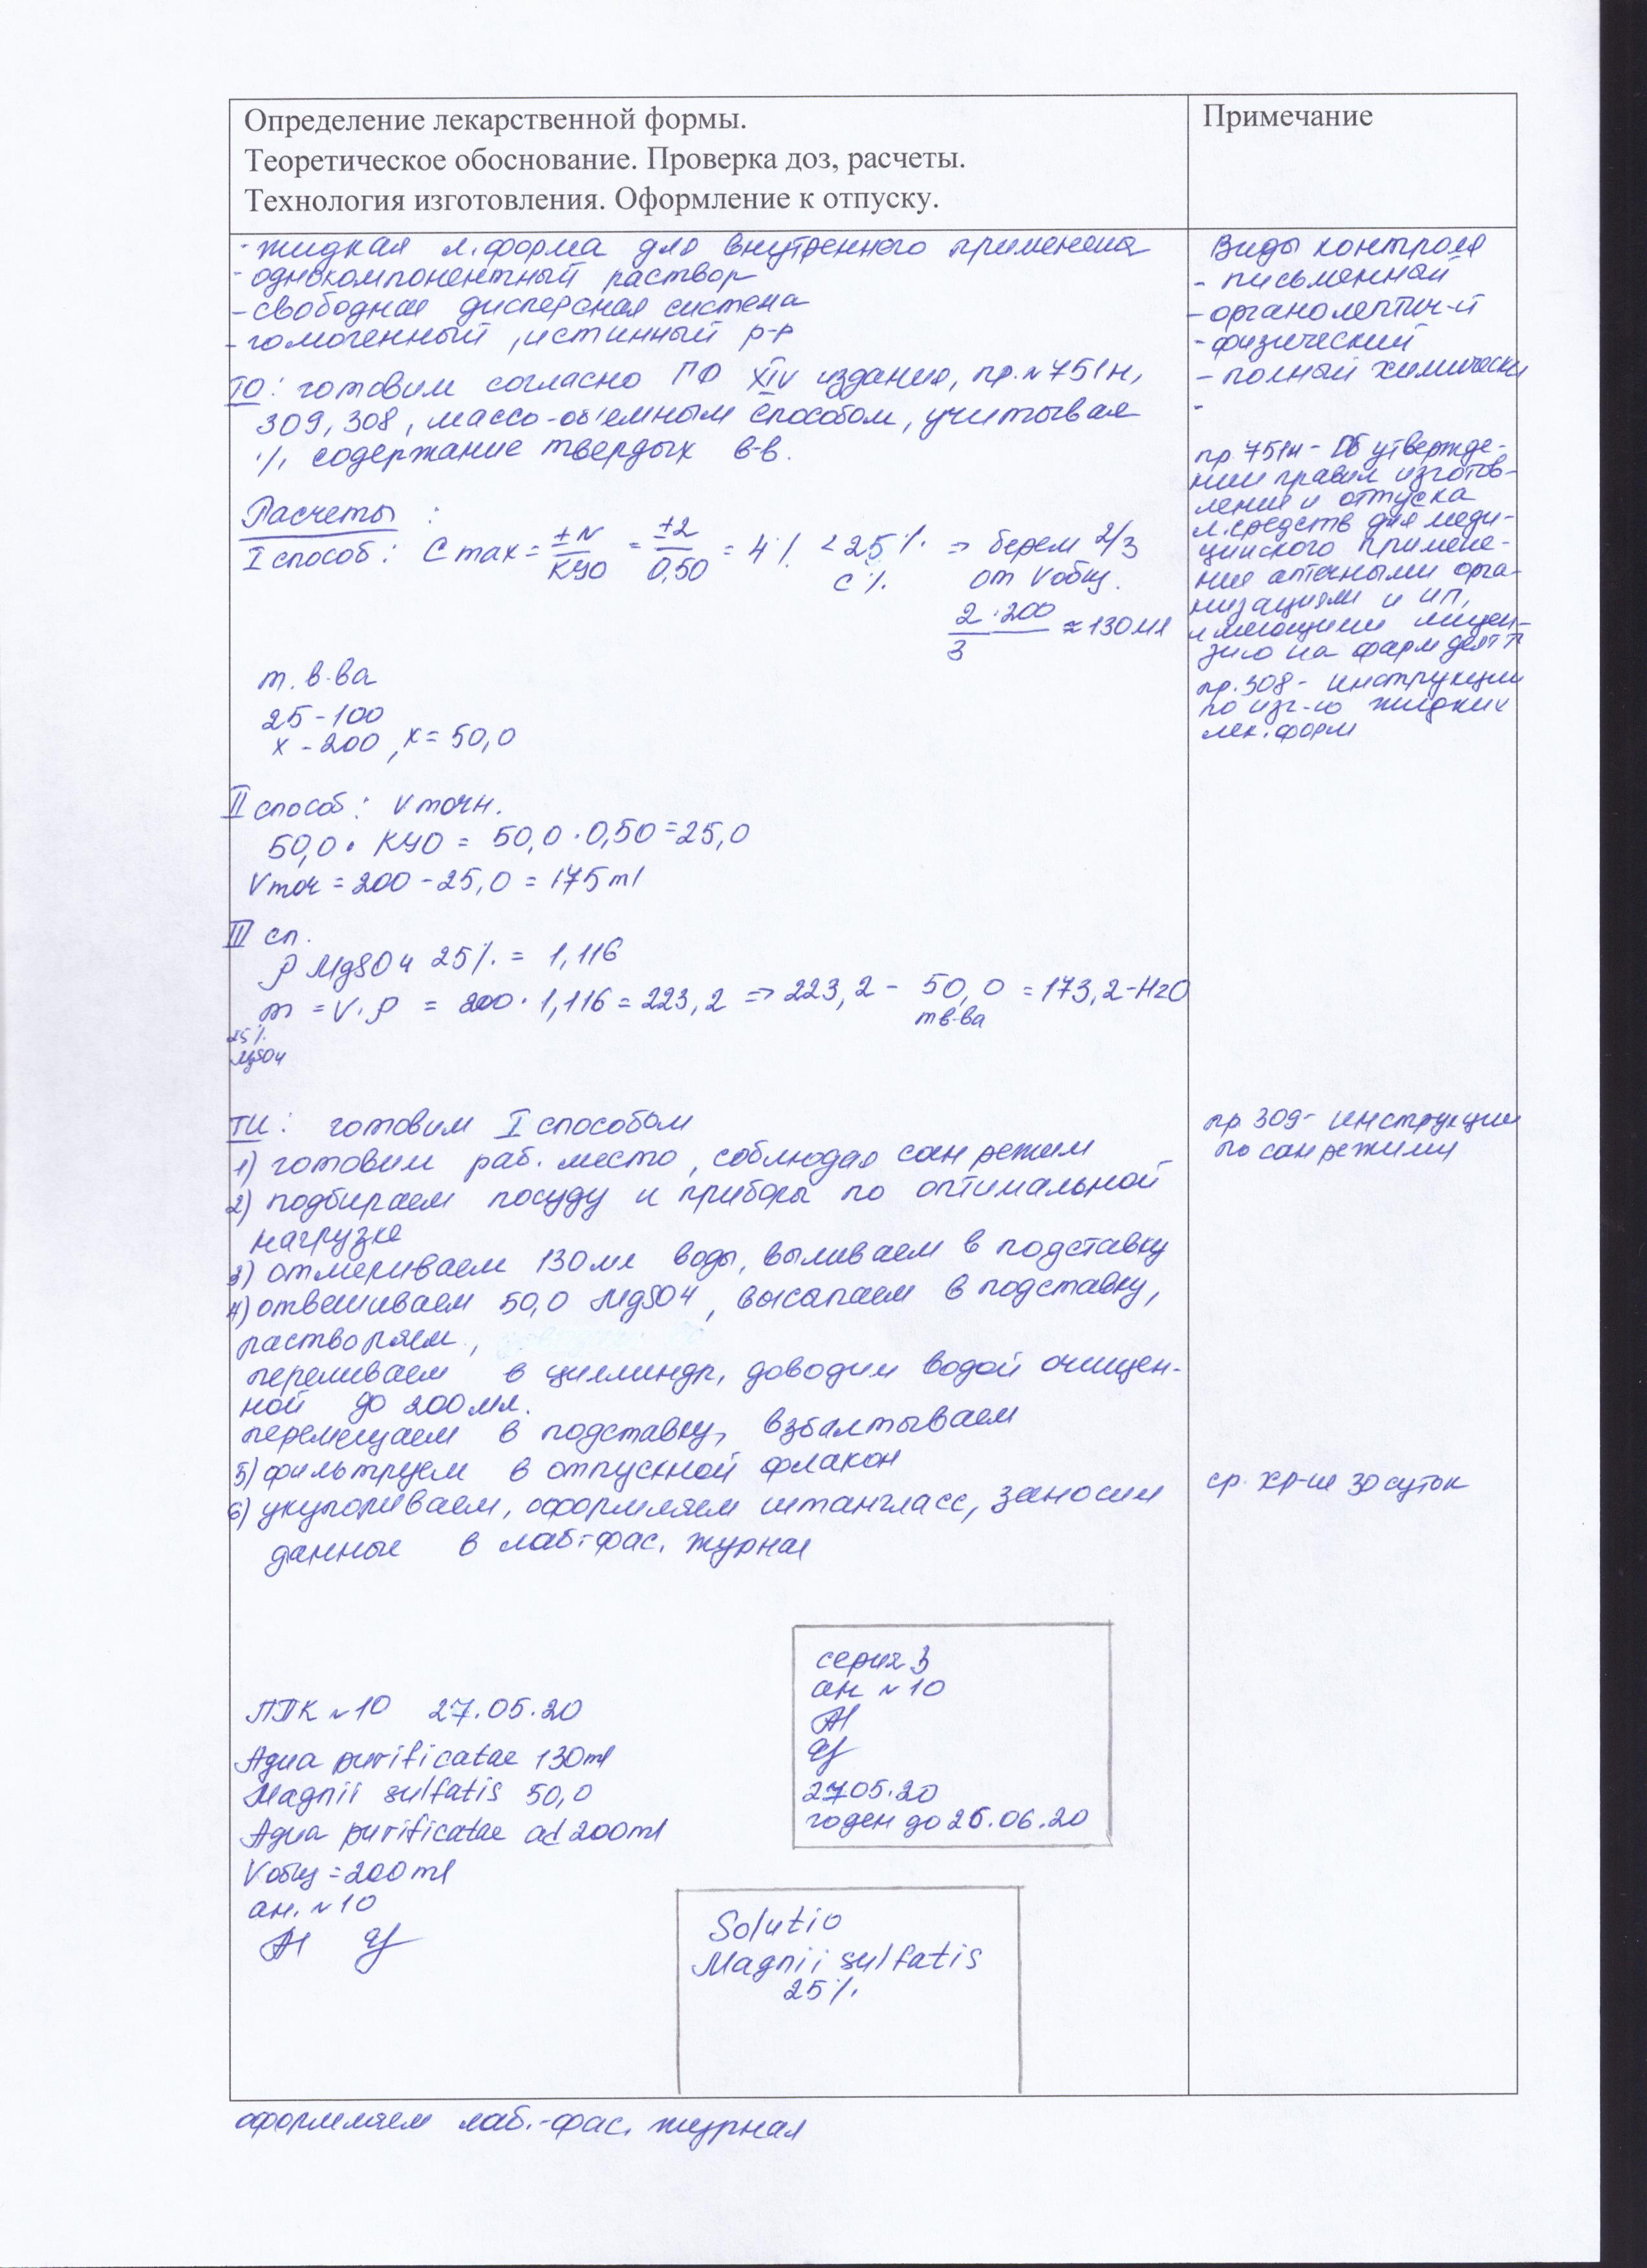 Определение лекарственной формы.
Теоретическое обоснование. Проверка доз, расчеты.
Технология изготовления. Оформление к отпуску.
Примечание
- жидкая л.форма для внутреннего применения
- однокомпонентный раствор
- свободная дисперсная система
- гомогенный, истинный р-р
ТО: готовим согласно ГФ XIV издания, пр.№751н,
309, 308, массо-объемным способом, учитывая
% содержание твердых в-в.
Расчеты:
I способ: C max = ±N/КУО = ±2/0,50 = 4% < 25% => берем 2/3
C% от Vобщ.
2·200/3 ≈ 130 мл
т. в-ва
25 - 100
x - 200, x = 50,0
II способ: Vточн.
50,0 · КУО = 50,0 · 0,50 = 25,0
Vточ = 200 - 25,0 = 175 ml
III сп.
ρ MgSO4 25% = 1,116
m = V·ρ = 200 · 1,116 = 223,2 => 223,2 - 50,0 = 173,2 - H2O
тв-ва
25%
MgSO4
ТИ: готовим I способом
1) готовим раб. место, соблюдая сан режим
2) подбираем посуду и приборы по оптимальной
нагрузке
3) отмериваем 130 мл воды, выливаем в подставку
4) отвешиваем 50,0 MgSO4, высыпаем в подставку,
растворяем,
переливаем в цилиндр, доводим водой очищен-
ной до 200 мл.
перемещаем в подставку, взбалтываем
5) фильтруем в отпускной флакон
6) укупориваем, оформляем штангласс, заносим
данные в лаб-фас. журнал
ППК №10 27.05.20
Aqua purificatae 130 ml
Magnii sulfatis 50,0
Aqua purificatae ad 200 ml
Vобщ = 200 ml
ан. №10
серия 3
ан №10
27.05.20
годен до 26.06.20
Solutio
Magnii sulfatis
25%
оформляем лаб.-фас. журнал
Виды контроля
- письменный
- органолептич-й
- физический
- полный химически
-
пр. 751н - Об утвержде-
нии правил изготов-
ления и отпуска
л.средств для меди-
цинского примене-
ния аптечными орга-
низациями и ИП,
имеющими лицен-
зию на фарм деят
пр.308 - инструкции
по изг-ю жидких
лек. форм
пр 309 - инструкции
по сан режиму
ср. хр-ие 30 суток